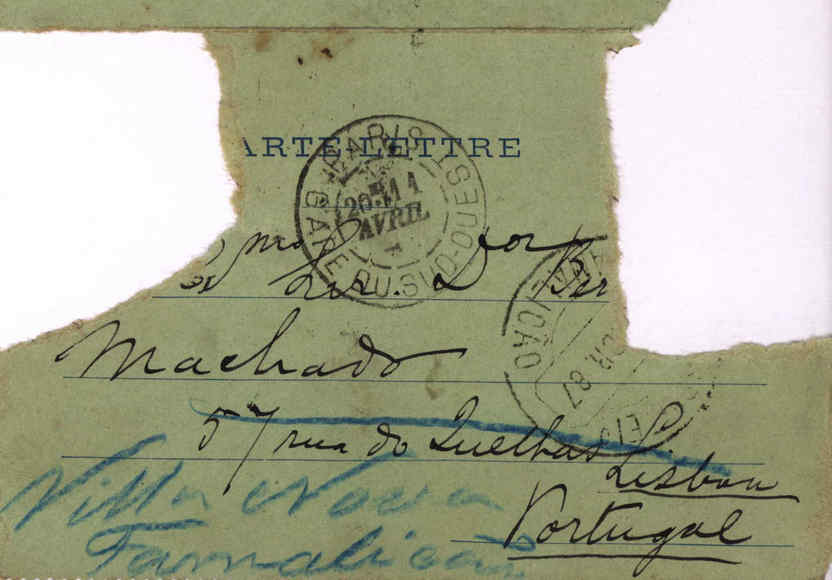 ARTE-LETTRE
PARIS GARE DU SUD-OUEST
11
AVRIL
Dor Ber
Machado
57 rua do Quelhas
Lisbon
Portugal
Villa Nova
Famalicão
87